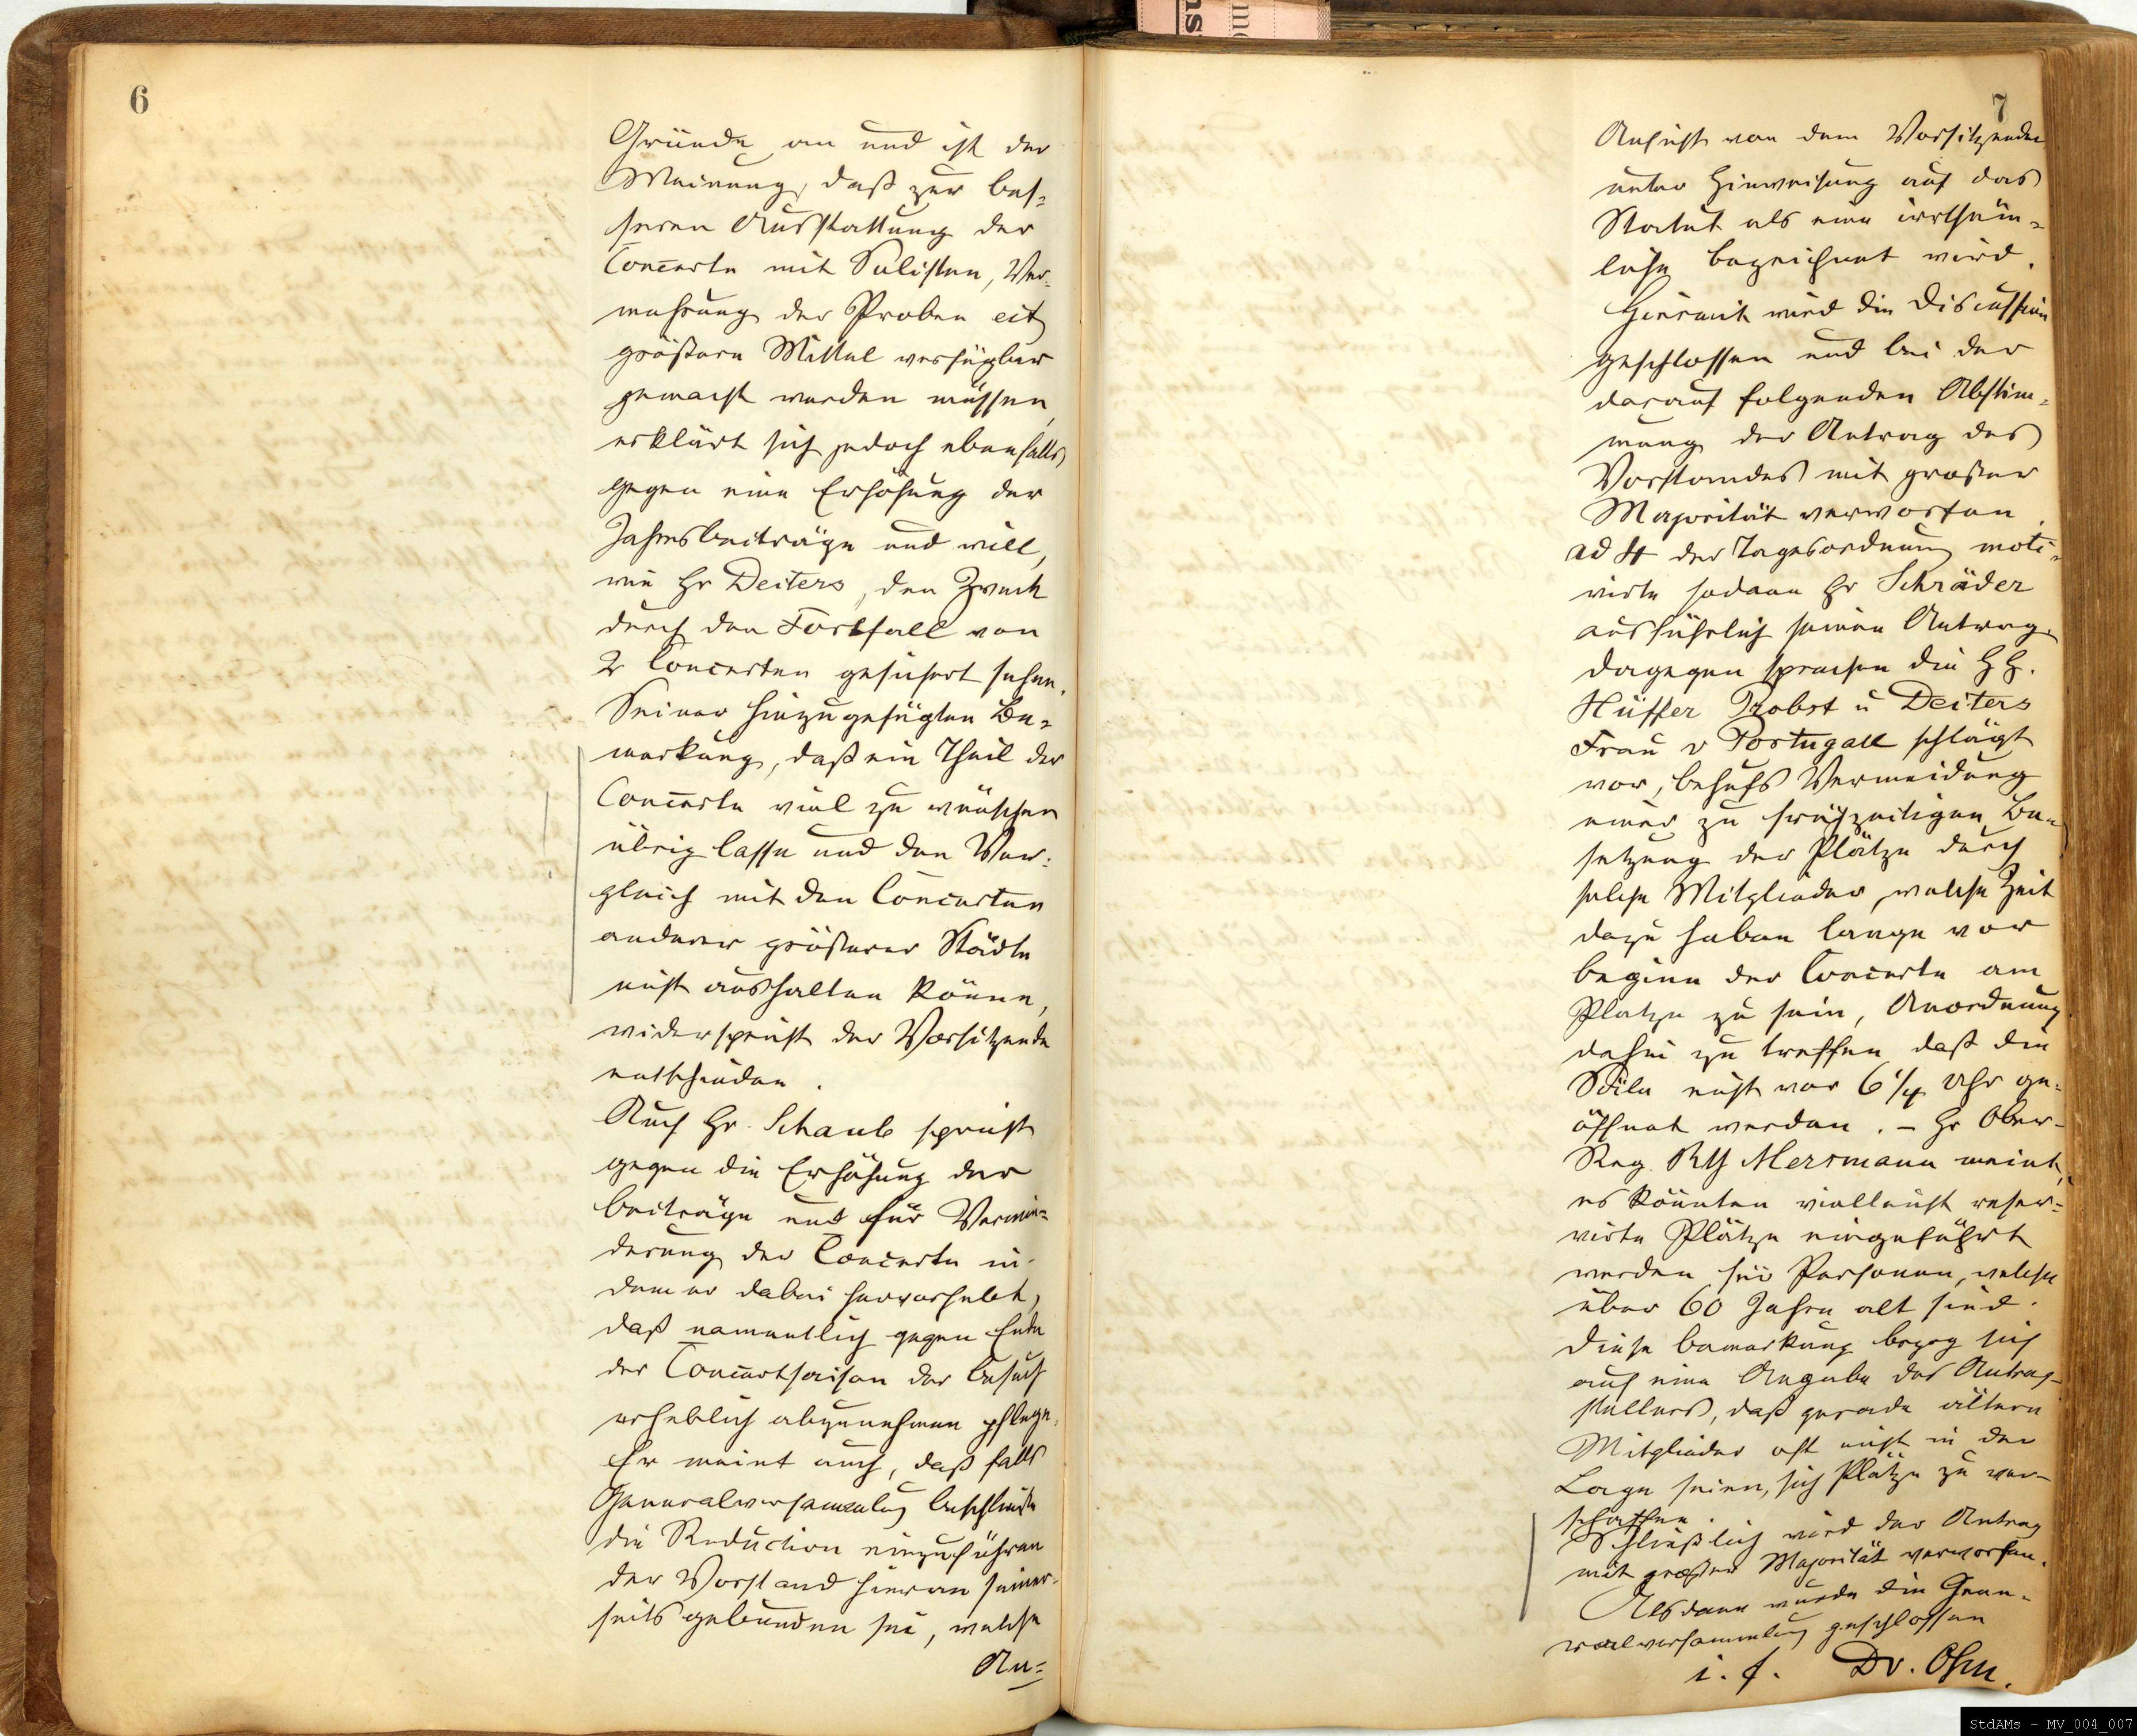 6
Gründe an und ist der
Meinung, daß zur bes=
seren Ausstattung der
Concerte mit Solisten, Ver=
mehrung der Proben etc
größere Mittel verfügbar
gemacht werden müssen,
erklärt sich jedoch ebenfalls
gegen eine Erhöhung der
Jahresbeiträge und will,
wie Hr Deiters, den Zweck
durch den Fortfall von
2 Concerten gesichert sehen.
Seiner hinzugefügten Be=
merkung, daß ein Theil der
Concerte viel zu wünschen
übrig lasse und den Ver=
gleich mit den Concerten
anderer größerer Städte
nicht aushalten könne,
widerspricht der Vorsitzende
entschieden.
Auch Hr. Schaub spricht
gegen die Erhöhung der
Beiträge und für Vermin=
derung der Concerte in-
dem er dabei hervorhebt,
daß namentlich gegen Ende
der Concertsaison der Besuch
erheblich abzunehmen pflege.
Er meint auch, daß falls
Generalversammlung beschließe
die Reduction einzuführen
der Vorstand hieran seiner-
seits gebunden sei, welche
An=
7
Ansicht von dem Vorsitzenden
unter Hinweisung auf das
Statut als eine irrthüm=
liche bezeichnet wird.
Hiermit wird die Discussion
geschlossen und bei der
darauf folgenden Abstim=
mung der Antrag des
Vorstandes mit großer
Majorität verworfen.
ad 4 der Tagesordnung moti=
virte sodann Hr Schräder
ausführlich seinen Antrag.
dagegen sprachen die HH.
Hüffer Probst u Deiters
Frau v Portugall schlägt
vor, behufs Vermeidung
einer zu frühzeitigen Be=
setzung der Plätze durch
solche Mitglieder, welche Zeit
dazu haben lange vor
Beginn der Concerte am
Platze zu sein, Anordnung
dahin zu treffen daß die
Säle nicht vor 6 1/4 Uhr ge=
öffnet werden. – Hr Ober-
Reg. Rth Mersmann meint,
es könnten vielleicht reser=
virte Plätze eingeführt
werden für Personen, welche
über 60 Jahre alt sind.
Diese Bemerkung bezog sich
auf eine Angabe des Antrag-
stellers, daß gerade ältere
Mitglieder oft nicht in der
Lage seien, sich Plätze zu ver-
schaffen.
Schließlich wird der Antrag
mit großer Majorität verworfen.
Alsdann wurde die Gene-
ralversammlung geschlossen
Dr. Ohm.
StdAMs - MV_004_007